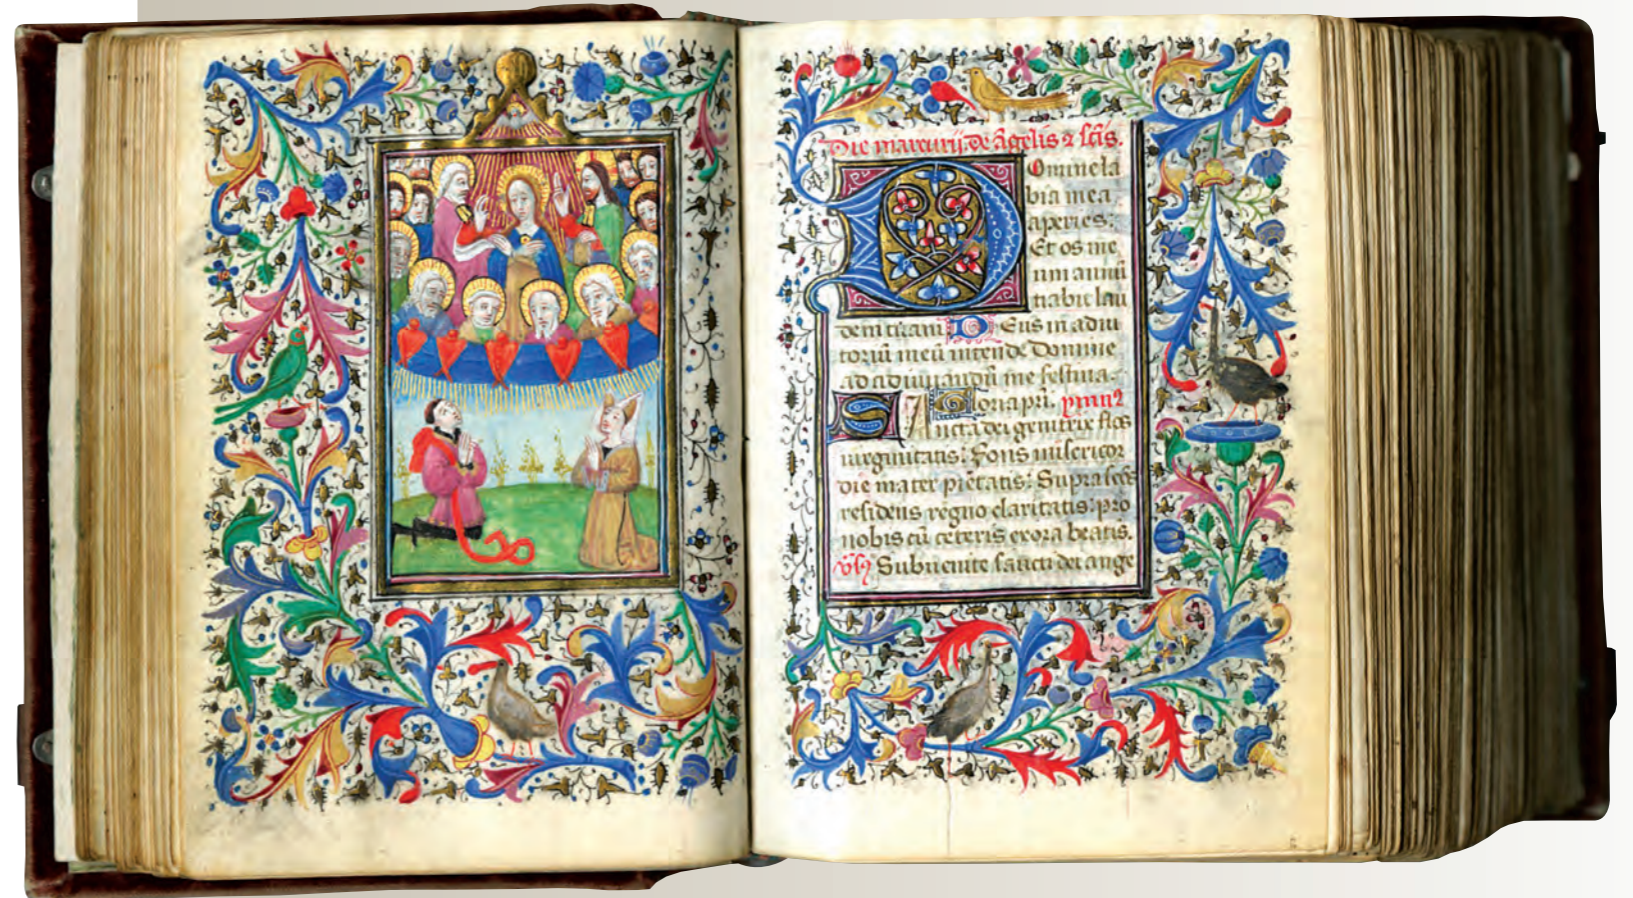 Die mercurij de āgelis ⁊ scīs.
Domine la
bia mea
aperies:
Et os me
um annū
tiabit lau
dem tuam Deus in adiu
toriū meū intende Domine
ad adiuuandū me festina.
Gloria pri. ymn⁹
Sancta dei genitrix flos
uirginitatis: Fons misericor
die mater pietatis: Supra scōs
residens regno claritatis: pro
nobis cū ceteris exora beatis.
Subuenite sancti dei ange